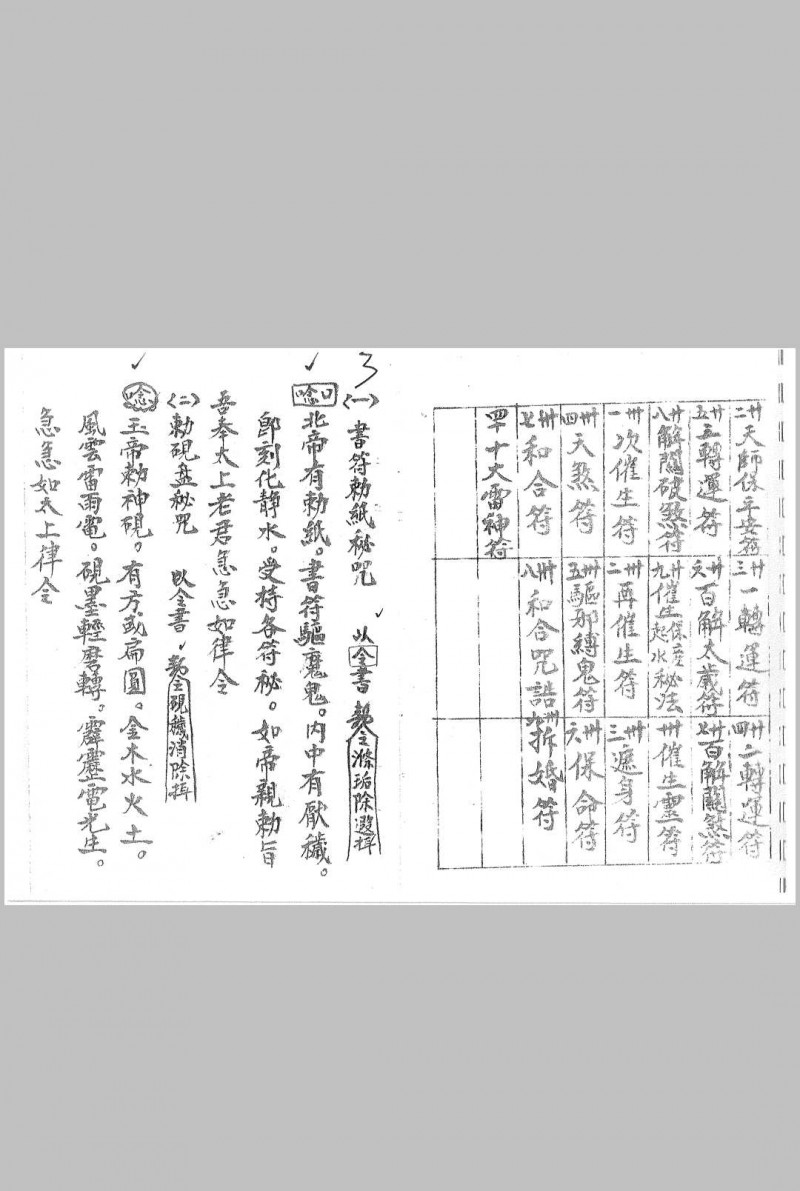 廿二 天師保平安符
廿三 一轉運符
廿四 二轉運符
廿五 五轉運符
廿六 百解太歲符
廿七 百解關煞符
廿八 解關破煞符
廿九 催生保產起水秘法
卅 催生靈符
卅一 次催生符
卅二 再催生符
卅三 遮身符
卅四 天煞符
卅五 驅邪縛鬼符
卅六 保命符
卅七 和合符
卅八 和合咒誥
卅九 拆婚符
四十 大雷神符
3
〈一〉書符勅紙秘咒 以全書
口唸 北帝有勅紙。書符驅魔鬼。內中有厭穢。
即刻化靜水。受持各符秘。如帝親勅旨
吾奉太上老君急急如律令
〈二〉勅硯盘秘咒 以全書、硯穢消除
唸 玉帝勅神硯。有方或扁圓。金木水火土。
風雲雷雨電。硯墨輕磨轉。霹靂電光生。
急急如太上律令